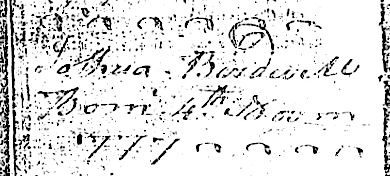 Joshua Bardwell
Born 4th
1777